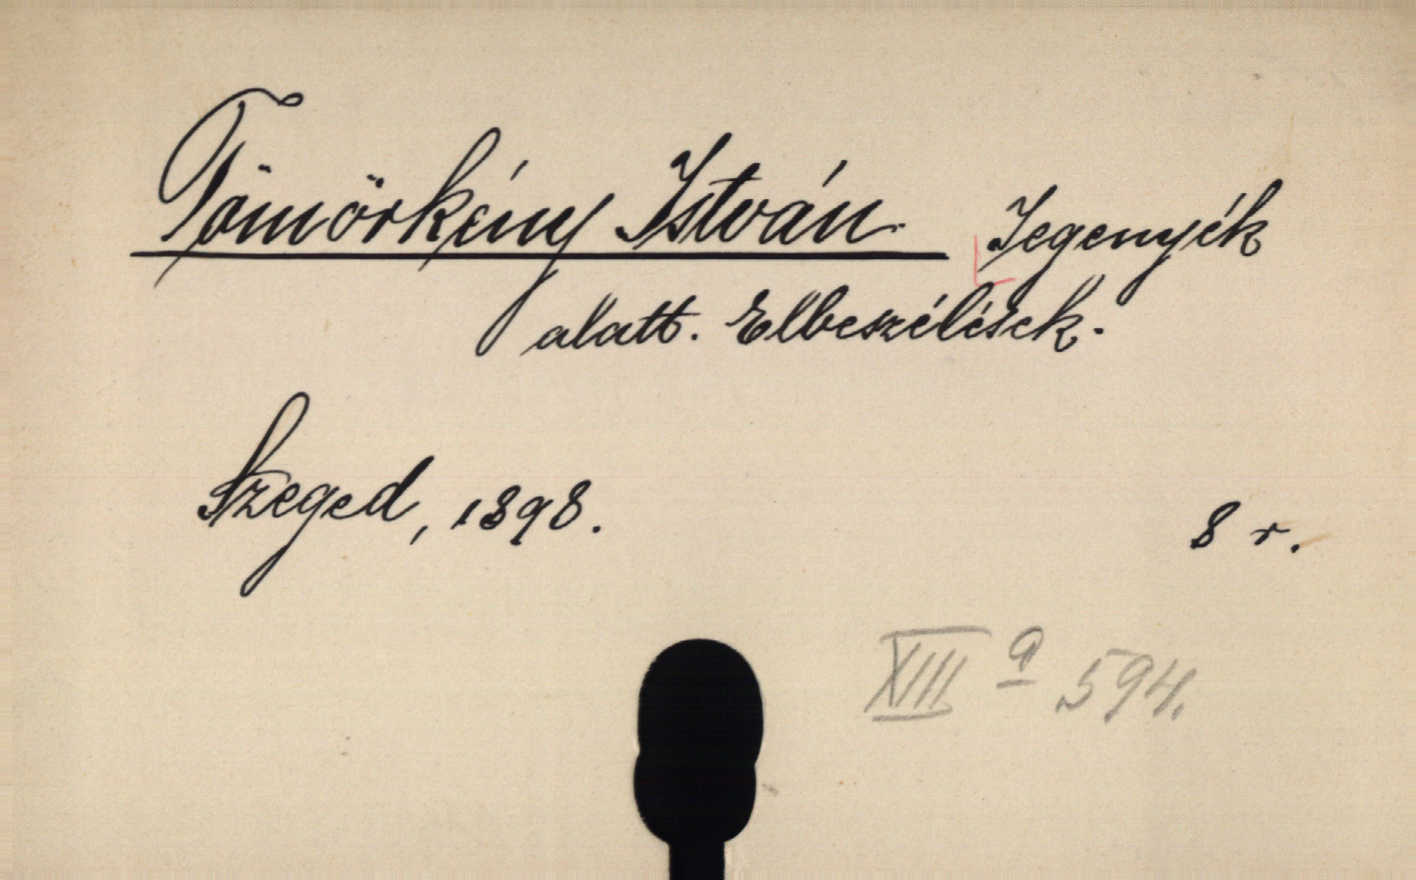 Tömörkény István Jegenyék
alatt. Elbeszélések.
Szeged, 1898.
8 r.
XIII a 594.